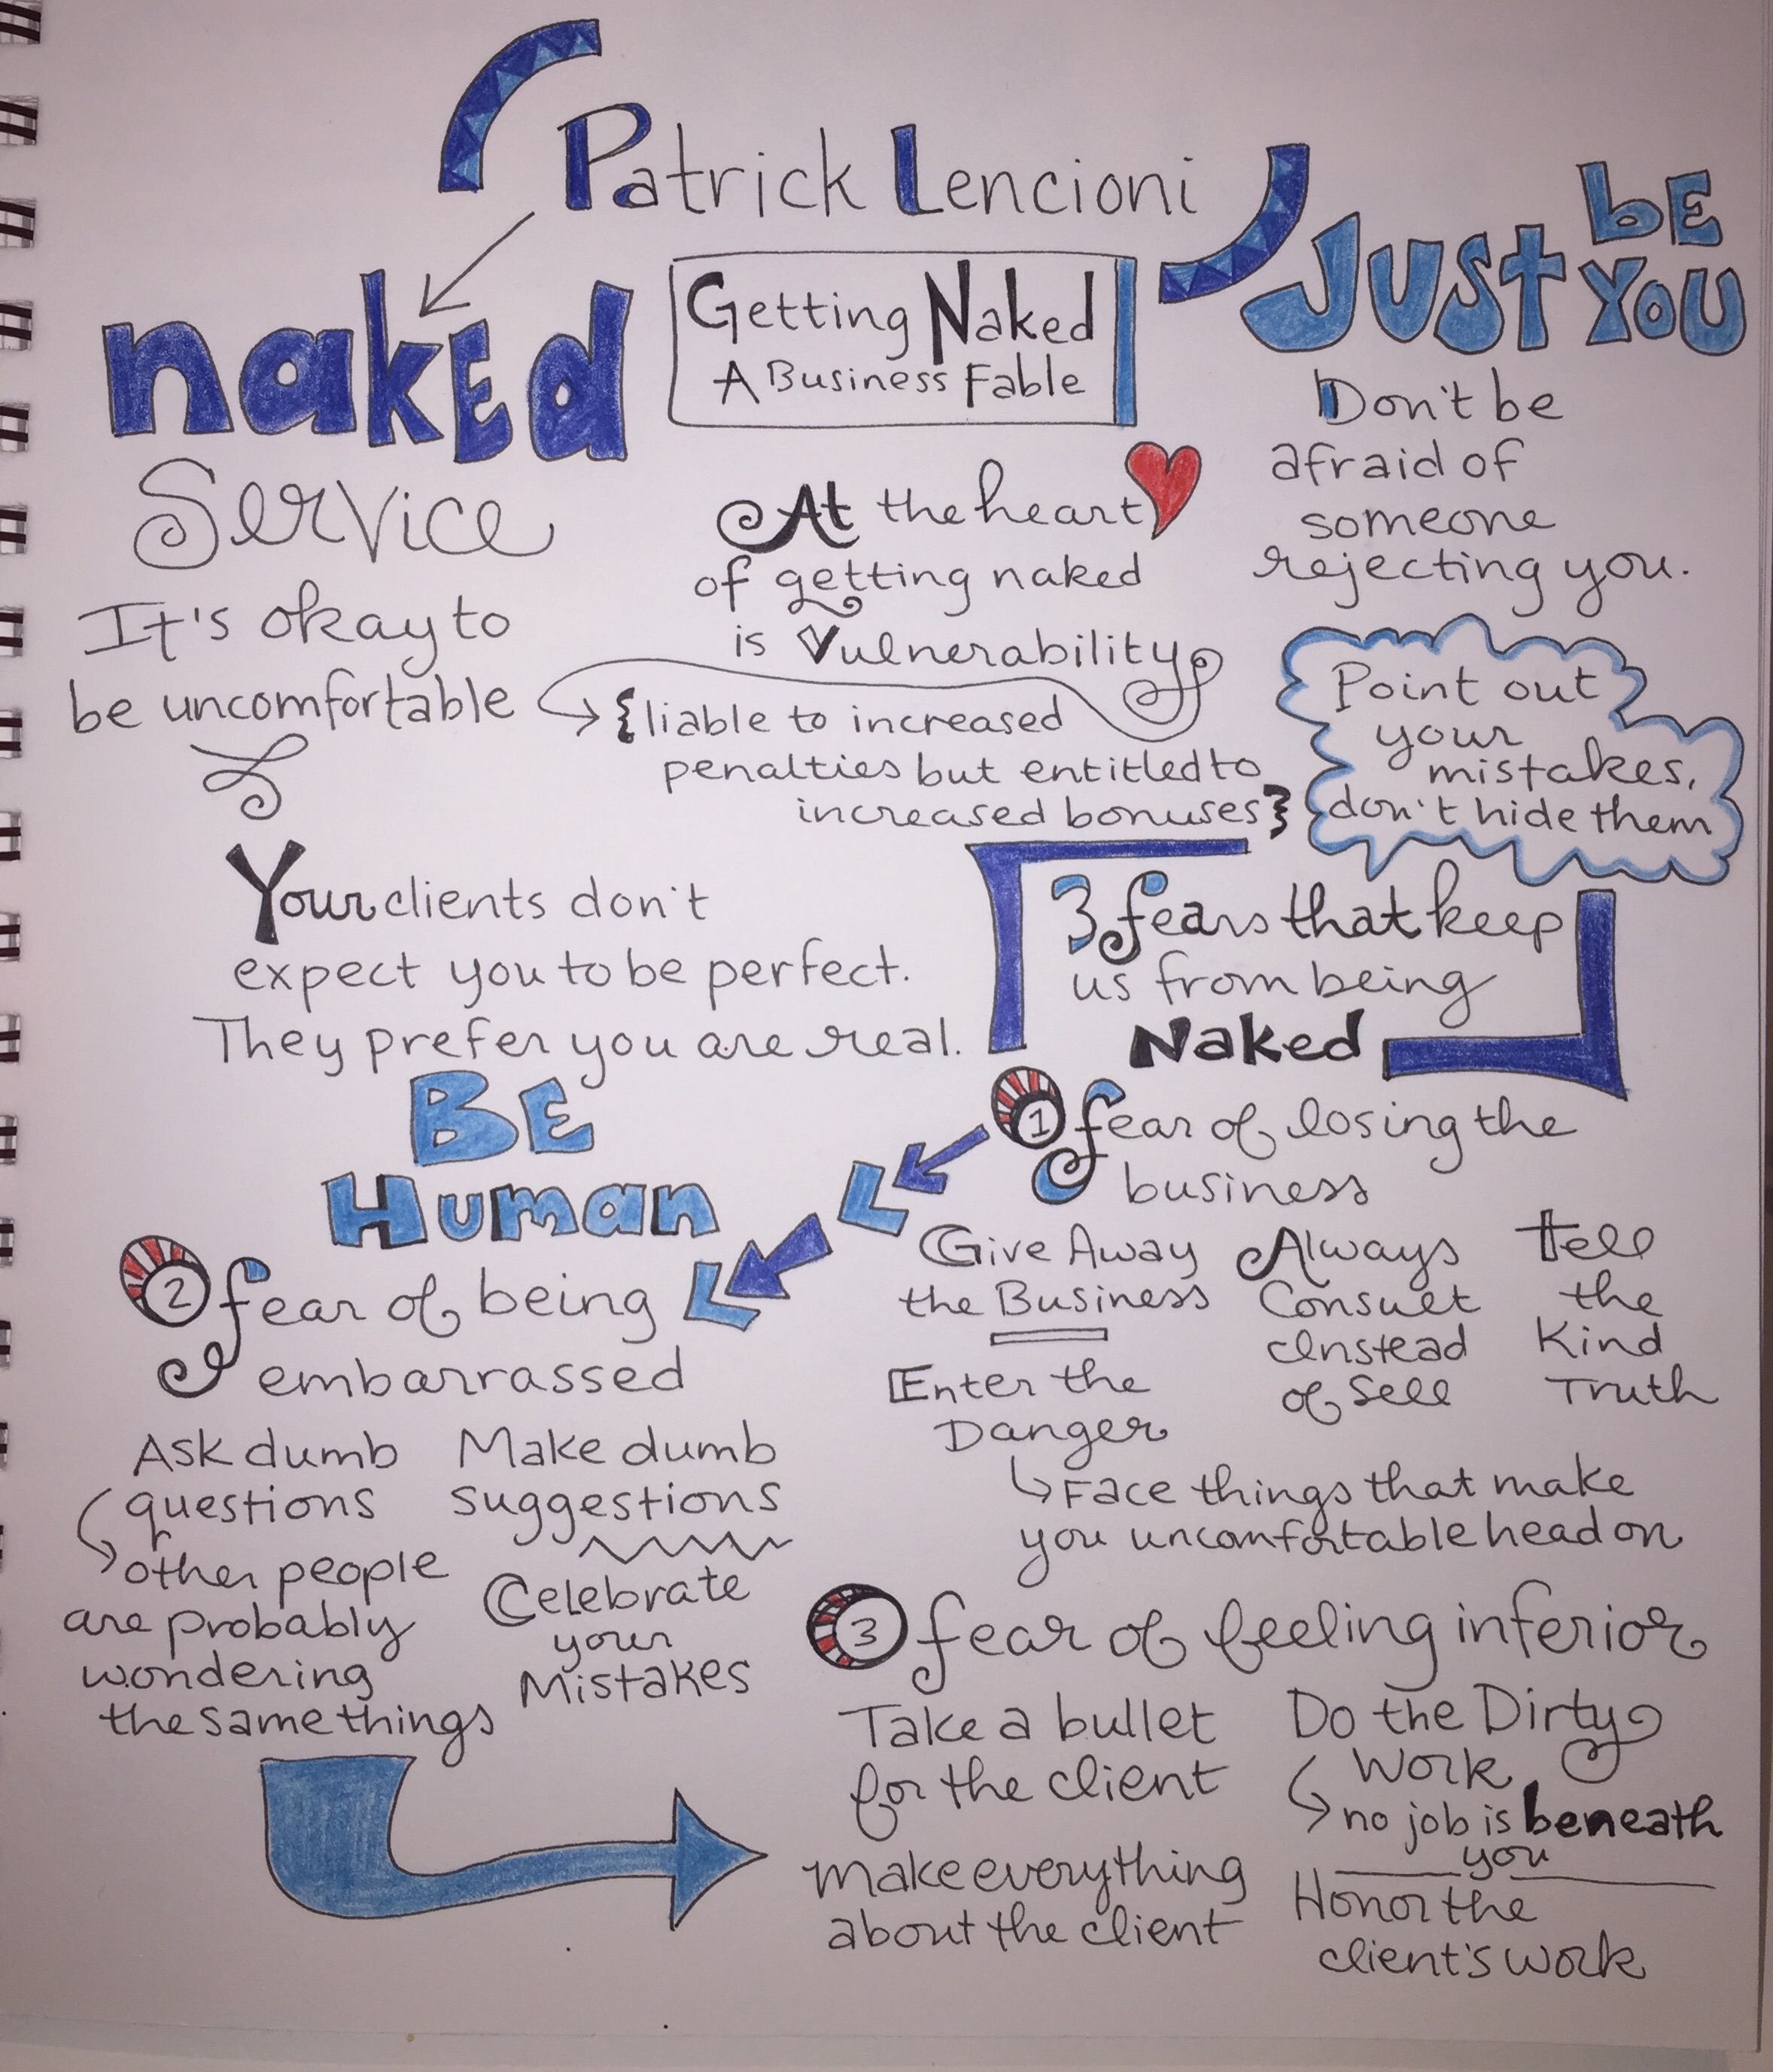 Patrick Lencioni
naked
Service
It's okay to
be uncomfortable
Getting Naked
A Business Fable
Just be
you
Don't be
afraid of
someone
rejecting you.
At the heart
of getting naked
is Vulnerability
{liable to increased
penalties but entitled to
increased bonuses}
Point out
your
mistakes,
don't hide them
Your clients don't
expect you to be perfect.
They prefer you are real.
Be
Human
3 fears that keep
us from being
Naked
1 fear of losing the
business
Give Away
the Business
Always
Consult
Instead
of Sell
Tell
the
Kind
Truth
Enter the
Danger
Face things that make
you uncomfortable head on
2 fear of being
embarrassed
Ask dumb
questions
other people
are probably
wondering
the same things
Make dumb
suggestions
Celebrate
your
Mistakes
3 fear of feeling inferior
Take a bullet
for the client
make everything
about the client
Do the Dirty
Work
no job is beneath
you
Honor the
client's work